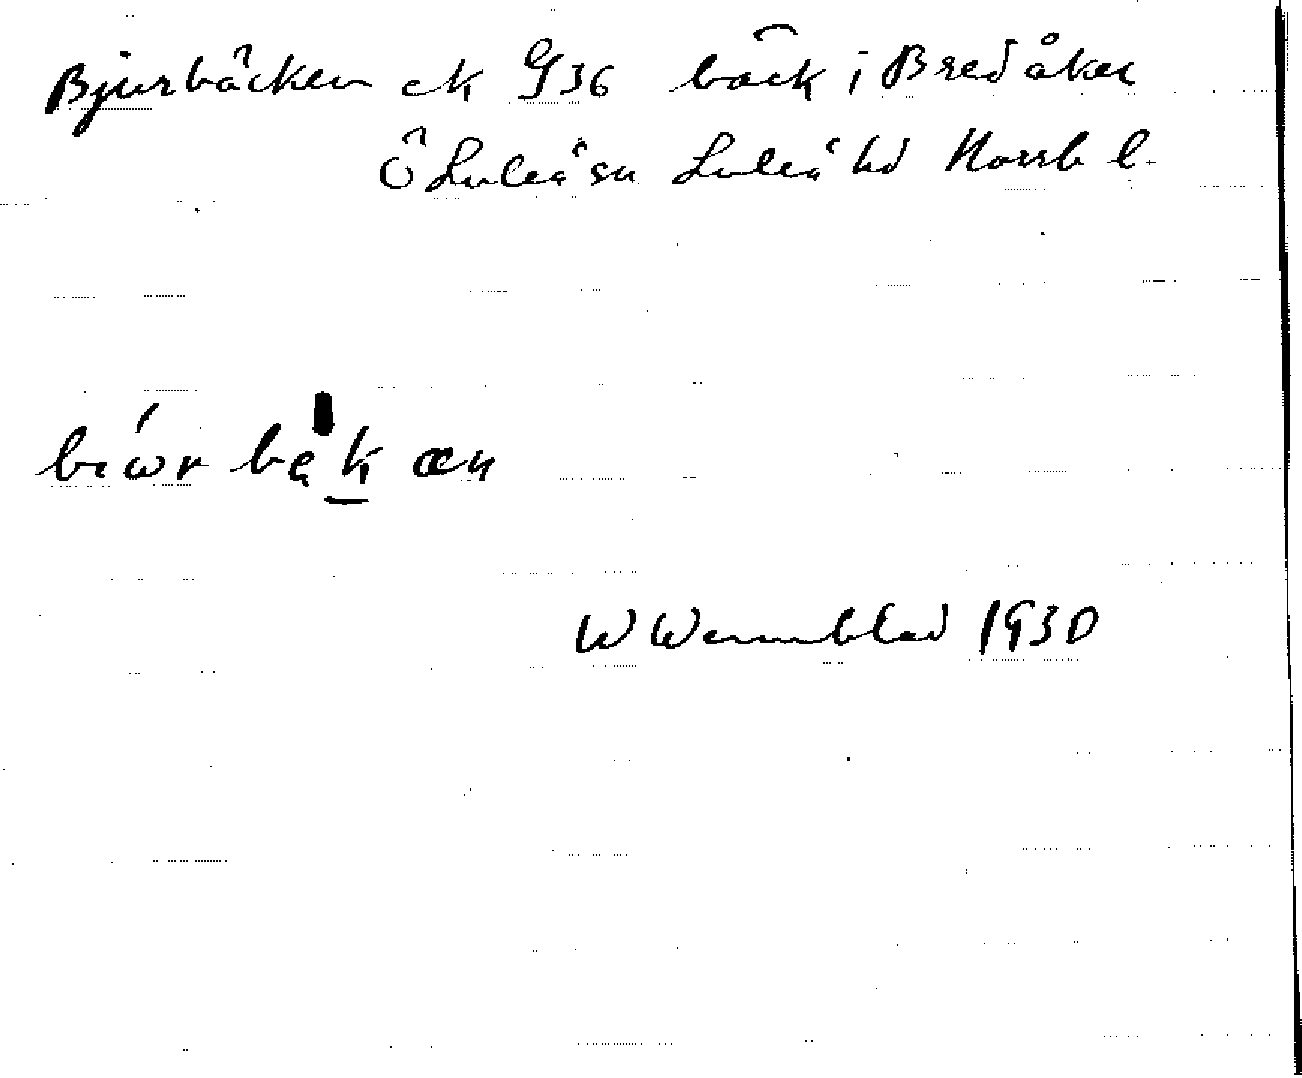 Bjurbäcken ek G36 bäck i Bredåker
Ö Luleå sn Luleå hd Norrb l.
biωr bäkæn
W Wennblad 1930